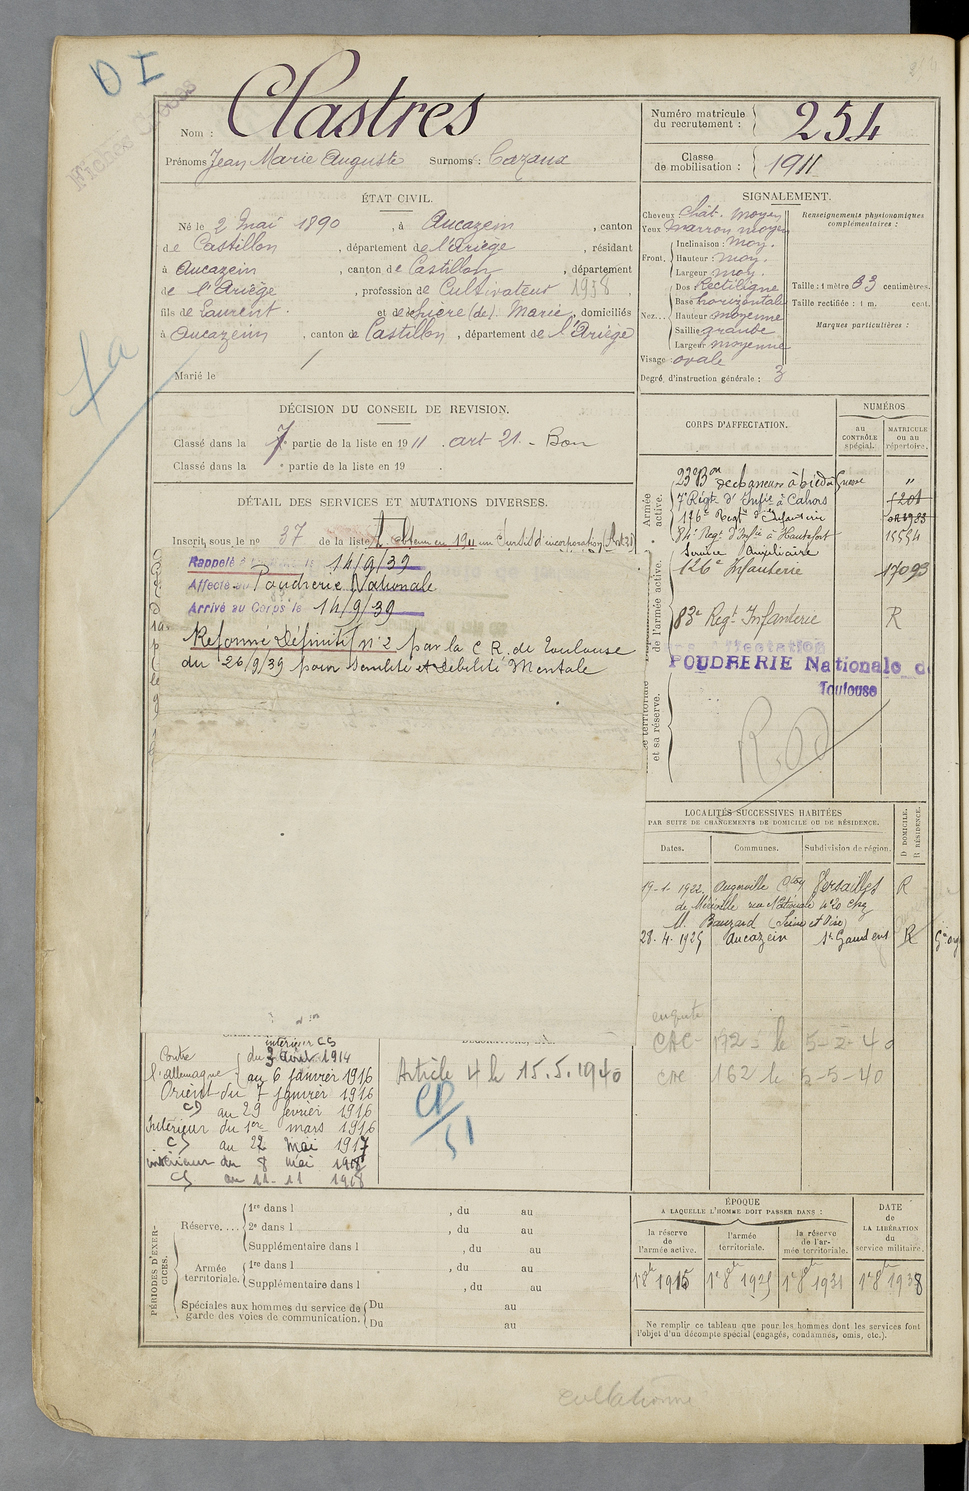 DI
Nom : Clastres
Prénoms Jean Marie Auguste Surnoms : Cazaux
Numéro matricule du recrutement : 254
Classe de mobilisation : 1911
ÉTAT CIVIL.
Né le 2 Mai 1890, à Aucazein, canton
de Castillon, département de l'Ariège, résidant
à Aucazein, canton de Castillon, département
de l'Ariège, profession de Cultivateur 1938
fils de Laurent et de (de) Marie, domiciliés
à Aucazein, canton de Castillon, département de l'Ariège
Marié le
SIGNALEMENT.
Cheveux chât. moyen
Yeux marron moyen
Front. Inclinaison : moy.
Hauteur : moy.
Largeur moy.
Nez... Dos Rectiligne
Base horizontale
Hauteur moyenne
Saillie grande
Largeur moyenne
Visage : ovale
Degré d'instruction générale : 3
Renseignements physionomiques complémentaires :
Taille : 1 mètre 63 centimètres.
Taille rectifiée : 1 m. cent.
Marques particulières :
DÉCISION DU CONSEIL DE REVISION.
Classé dans la 7 partie de la liste en 1911. art 21 - Bon
Classé dans la partie de la liste en 19 .
DÉTAIL DES SERVICES ET MUTATIONS DIVERSES.
Inscrit sous le n° 37 de la liste
Rappelé 14/9/39
Affecté Poudrerie Nationale
Arrivé au Corps le 14/9/39
Reformé Définitif n° 2 par la C R. de Toulouse
du 26/9/39 pour Senilité et débilité Mentale
CORPS D'AFFECTATION.
NUMÉROS
au CONTRÔLE spécial.
MATRICULE ou au répertoire.
Armée active.
23e Bon de chasseurs à pied à Grasse "
7e Régt d'Infie à Cahors 5201
176e Regt d'Infanterie
84e Regt d'Infie à Hautefort 15554
Service Auxiliaire
126e Infanterie 17093
83e Regt Infanterie R
POUDRERIE Nationale de
Toulouse
de l'armée active.
et sa réserve.
LOCALITÉS SUCCESSIVES HABITÉES
PAR SUITE DE CHANGEMENTS DE DOMICILE OU DE RÉSIDENCE.
Dates. Communes. Subdivision de région. D DOMICILE. R RÉSIDENCE.
19-1-1922. Angerville Versailles R
de Méréville rue Nationale n° 20 chez
M. (Seine et Oise)
28.4.1925 Aucazein St Gaudens R
CAC 172 le 5-2-40
CAC 162 le 5-5-40
Article 4 le 15.5.1940
Contre l'Allemagne
intérieur CS
du 3 1914
au 6 janvier 1916
Orient du 7 janvier 1916
au 29 février 1916
Intérieur du 1er mars 1916
CS au 22 Mai 1917
intérieur du 8 mai 1918
CS au 11-11 1918
PÉRIODES D'EXERCICES.
Réserve.... 1re dans l , du au
2e dans l , du au
Supplémentaire dans l , du au
Armée territoriale. 1re dans l , du au
Supplémentaire dans l , du au
Spéciales aux hommes du service de garde des voies de communication. Du au
Du au
ÉPOQUE
A LAQUELLE L'HOMME DOIT PASSER DANS :
la réserve de l'armée active.
l'armée territoriale.
la réserve de l'armée territoriale.
DATE de LA LIBÉRATION du service militaire.
1er 8bre 1915
1er 8bre 1925
1er 8bre 1931
1er 8bre 1938
Ne remplir ce tableau que pour les hommes dont les services font l'objet d'un décompte spécial (engagés, condamnés, omis, etc.).
collationné